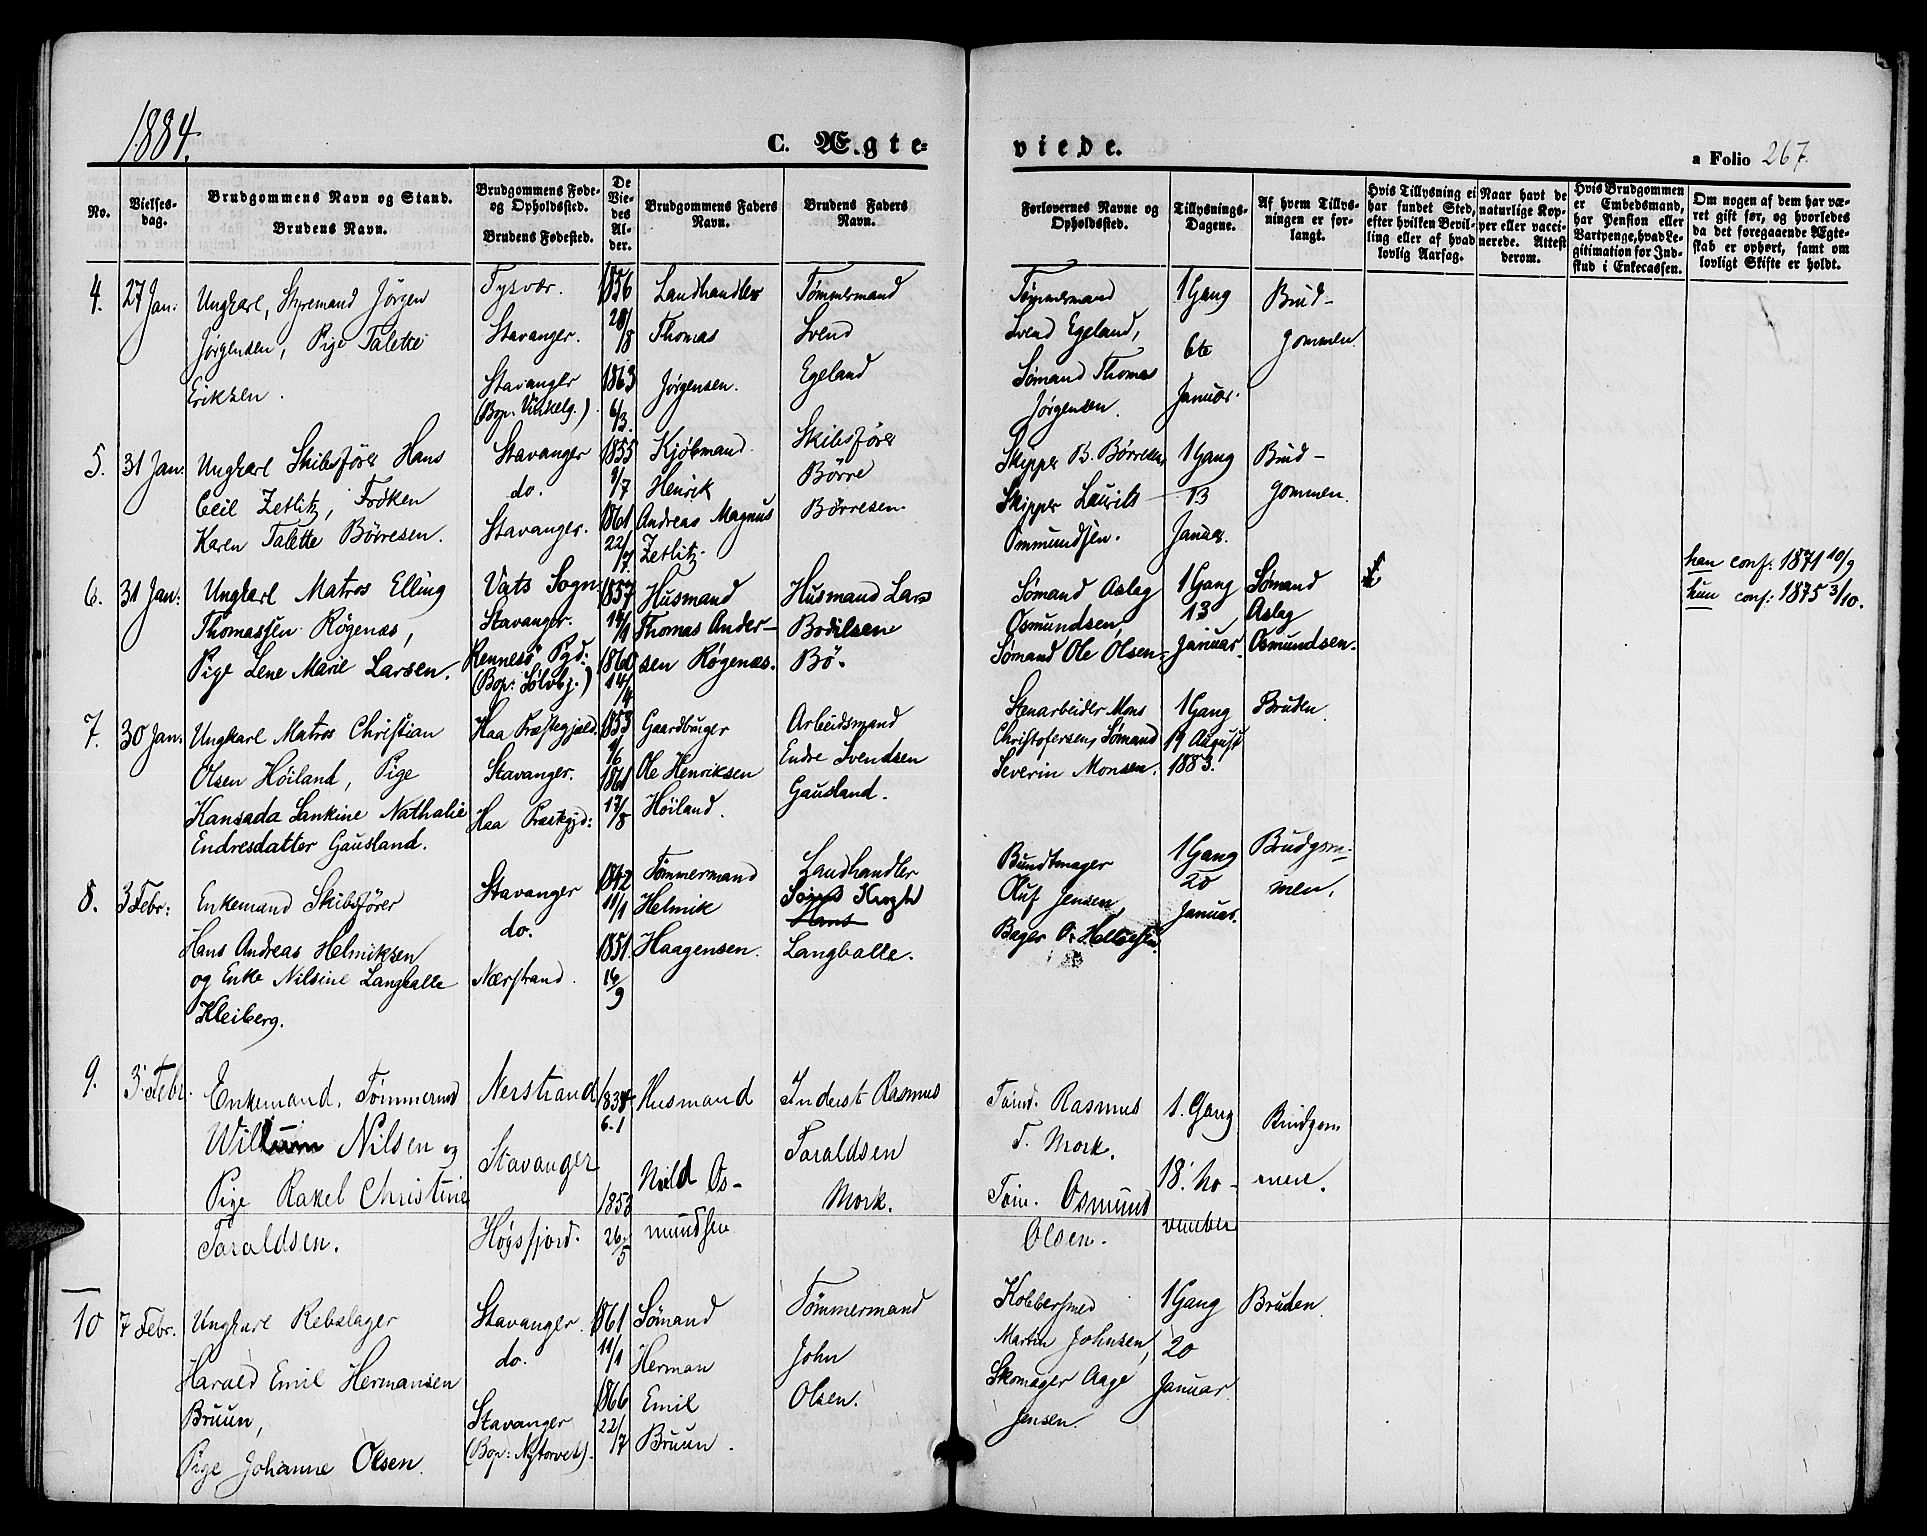 1884.
C. Ægte-
viede.
a Folio 267.
No.
Vielses-
dag.
Brudgommens Navn og Stand.
Brudens Navn.
Brudgommens Føde-
og Opholdssted.
Brudens Fødested.
De
Vie-
des
Al-
der.
Brudgommens Faders
Navn.
Brudens Faders
Navn.
Forlovernes Navne og
Opholdssted.
Tillysnings-
Dagene.
Af hvem Tillys-
ningen er for-
langt.
Hvis Tillysning ei
har fundet Sted,
efter hvilken Bevil-
ling eller af hvad
lovlig Aarsag.
Naar havt de
naturlige Kop-
per eller vacci-
nerede. Attest
derom.
Hvis Brudgommen
er Embedsmand,
har Pension eller
Vartpenge, hvad Le-
gitimation for Ind-
skud i Enkecassen.
Om nogen af dem har væ-
ret gift før, og hvorledes
da det foregaaende Ægte-
skab er ophørt, samt om
lovligt Skifte er holdt.
4.
27 Jan:
Ungkarl, Styremand Jörgen
Jørgensen, Pige Talette
Eriksen.
Tysvær.
Stavanger.
Stavanger
(Bop. Vinkelg.)
1856
28/8
1863
6/3.
Landhandler
Thomas
Jørgensen.
Tømmermand
Svend
Egeland
Tømmermand
Svend Egeland,
Sømand Thomas
Jørgensen.
1 Gang
6te
Januar.
Brud-
gommen.
5.
31 Jan:
Ungkarl Skibsfører Hans
Ceil Zetlitz, Frøken
Karen Talette Börresen.
Stavanger
do.
Stavanger.
1855
9/7
1861
22/7.
Kjøbmand
Henrik
Andreas Magnus
Zetlitz.
Skibsfører
Börre
Börresen.
Skipper B. Börresen,
Skipper Laurits
Ommundsen.
1 Gang
13
Januar.
Brud-
gommen.
6.
31 Jan:
Ungkarl Matros Elling
Thomassen Røgenæs,
Pige Lene Marie Larsen.
Vats Sogn
Stavanger.
Rennesö Pgd:
(Bop: Sölvbg.)
1857
14/1
1860
14/4
Husmand
Thomas Ander-
sen Røgenæs.
Husmand Lars
Bodilsen
Bö.
Sømand Aslag
Osmundsen,
Sømand Ole Olsen.
1 Gang
13
Januar.
Sømand
Aslag
Osmundsen.
han conf: 1871 10/9
hun conf: 1875 3/10.
7.
30 Jan:
Ungkarl Matros Christian
Olsen Höiland, Pige
Kansada Sankine Nathalie
Endresdatter Gausland.
Haa Præstegjæld.
Stavanger.
Haa Præstegjd:
1853
1861
17/8
Gaardbruger
Ole Henriksen
Höiland.
Arbeidsmand
Endre Svendsen
Gausland.
Stenarbeider Mons
Christofersen, Sømand
Severin Monsen.
1 Gang
19 August
1883.
Bruden
8.
3 Febr:
Enkemand Skibsfører
Hans Andreas Helmiksen
og Enke Nilsine Langballe
Kleiberg.
Stavanger
do.
Nærstrand.
1842
11/1
1851
16/9
Tømmermand
Helmik
Haagensen.
Landhandler
Krogh
Langballe.
Bundtmager
Oluf Jensen,
Bager O.
1 Gang
20
Januar.
Brudgom-
men.
9.
3' Febr.
Enkemand. Tømmermd
Willum Nilsen og
Pige Rakel Christine
Taraldsen.
Nerstrand
Stavanger
Høgsfjord.
1838
6.1
1853
26/5
Husmand
Nild Os-
mundsen
Inderst Rasmus
Taraldsen
Mork.
Tøm. Rasmus
T. Mork.
Tøm. Osmund
Olsen.
1. Gang
18' No-
vember
Brudgom
men.
10
7 Febr.
Ungkarl Rebslager
Harald Emil Hermansen
Bruun,
Pige Johanne Olsen.
Stavanger.
do.
Stavanger
(Bop: Nytorvet).
1861
11/1
1866
22/7
Sømand
Herman
Emil
Bruun.
Tømmermand
John
Olsen.
Kobbersmed
Martin Johnsen,
Skomager Aage
Jensen.
1 Gang
20
Januar
Bruden.